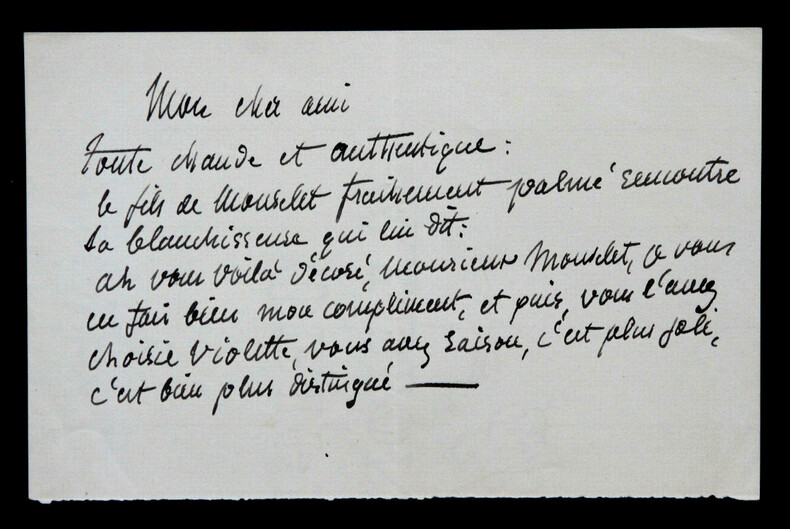 Mon cher ami
Toute chaude et authentique :
le fils de Monselet fraîchement palmé rencontre
sa blanchisseuse qui lui dit :
ah vous voilà décoré, monsieur Monselet, je vous
en fais bien mon compliment, et puis, vous l'avez
choisie violette, vous avez raison, c'est plus joli,
c'est bien plus distingué —